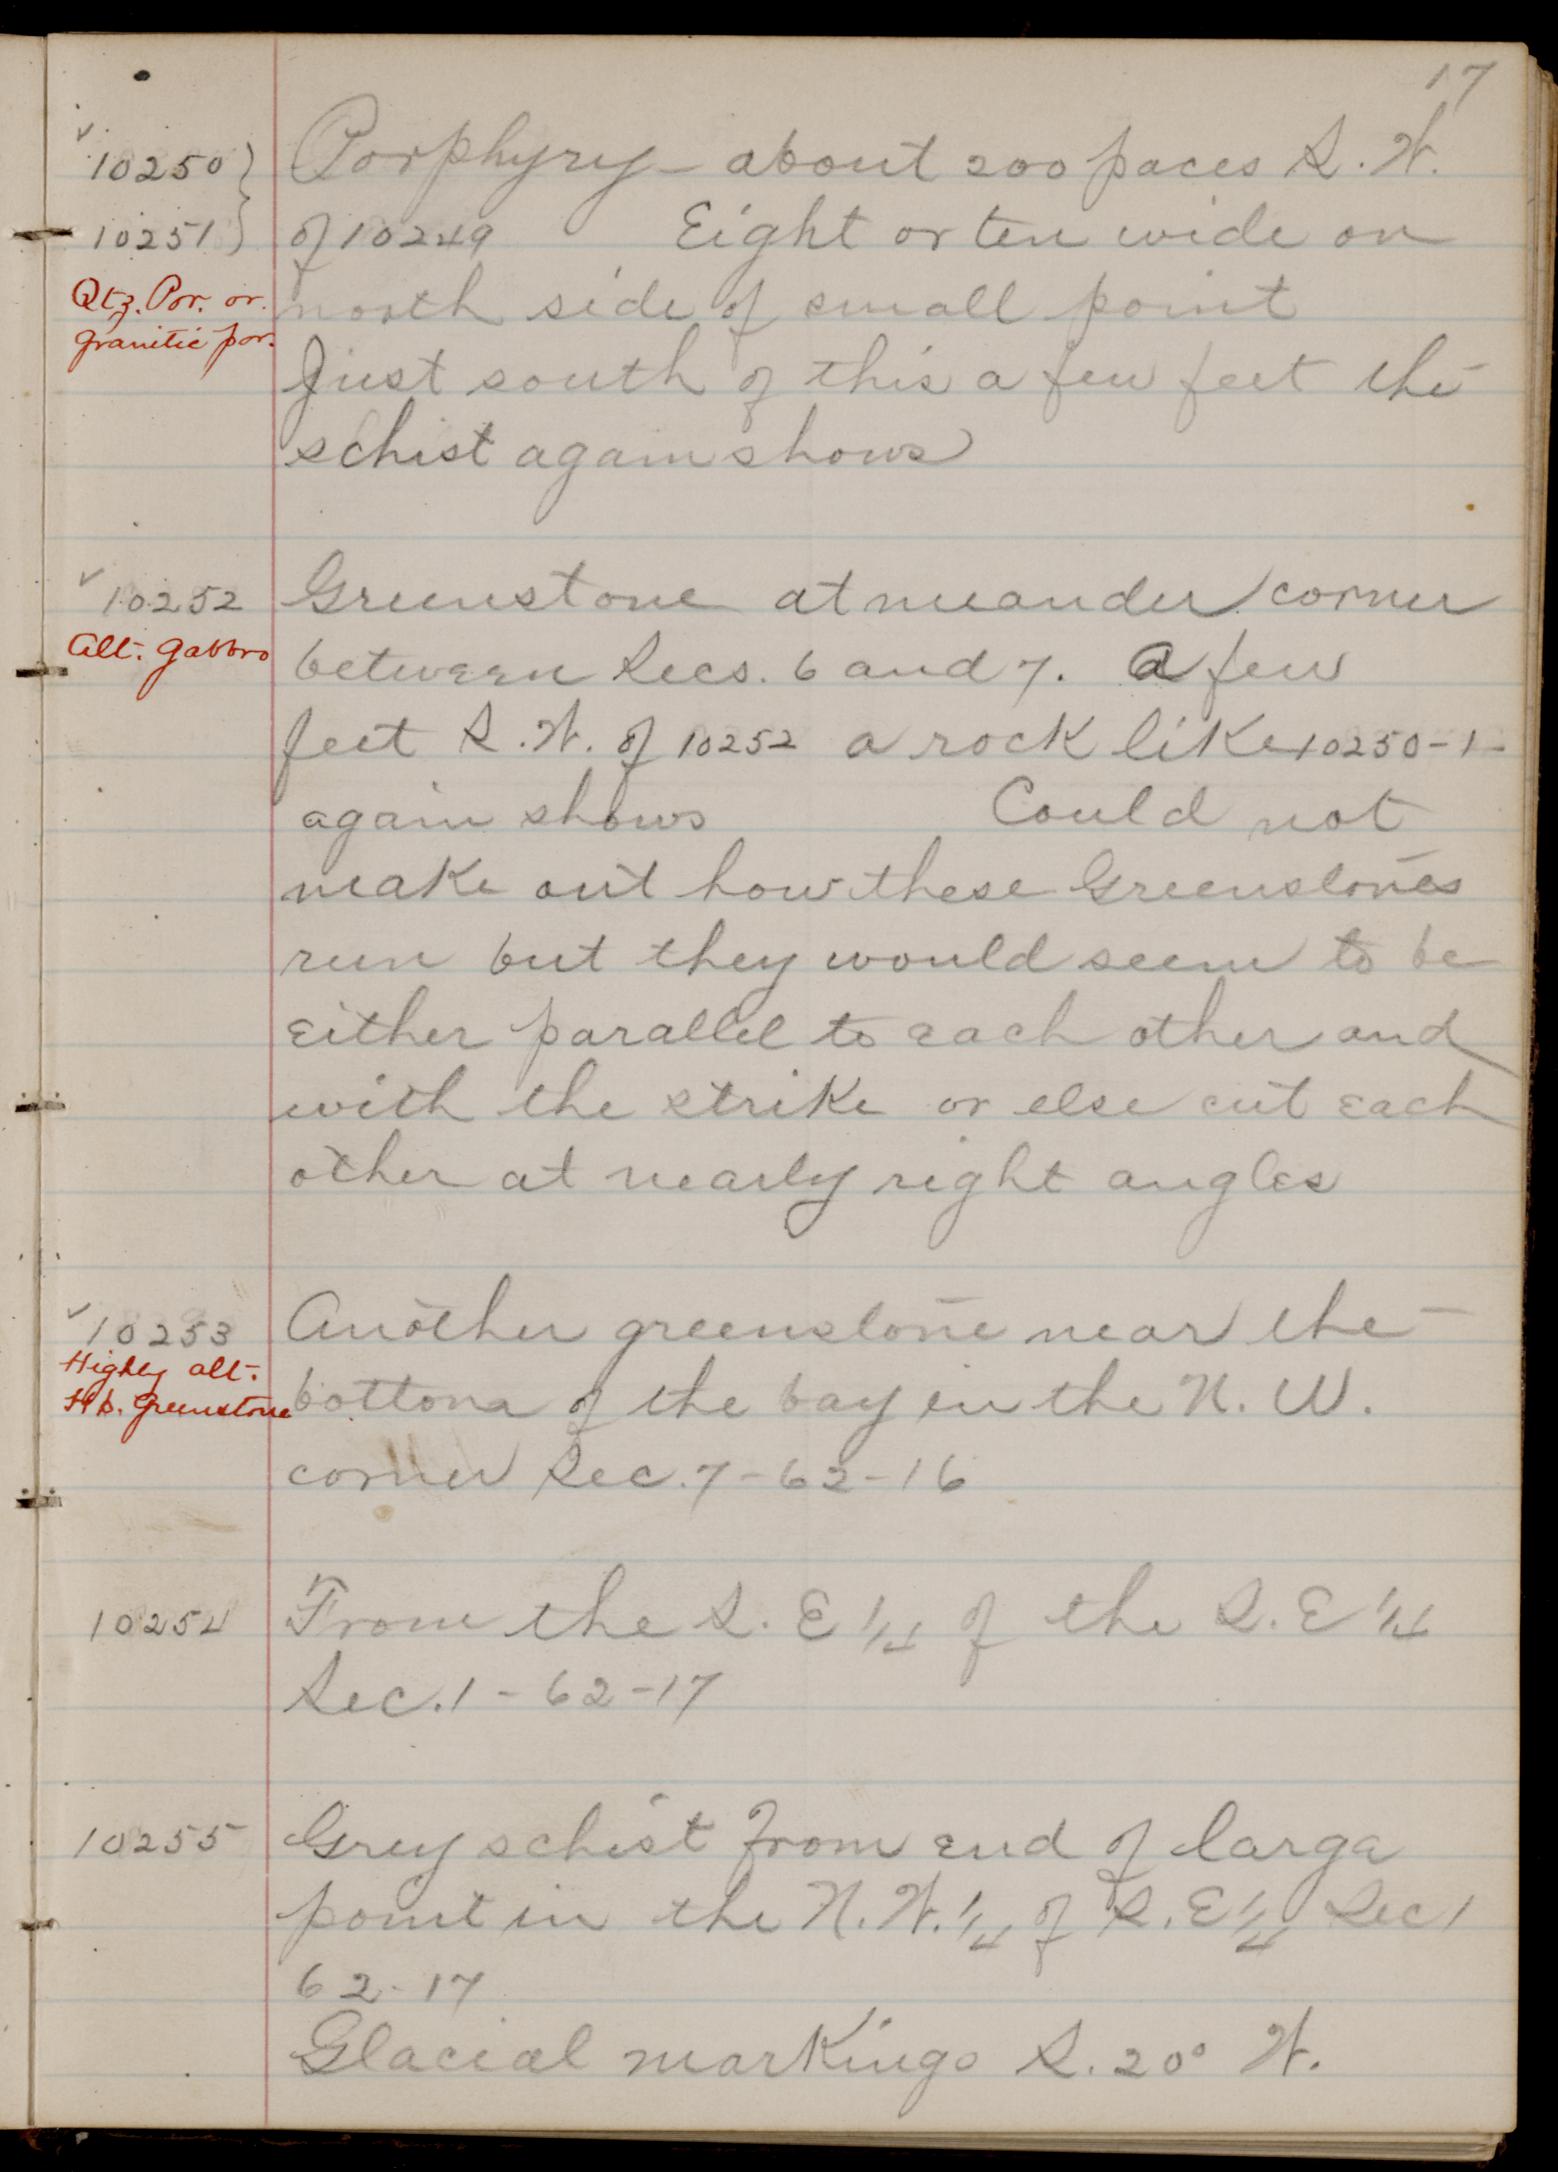 17
✓
10250 } Porphyry - about 200 paces S. W.
10251 } of 10249 Eight or ten wide on
Qtz. Por. or. north side of small point
granitic por.
Just south of this a few feet the
schist again shows
✓
10252 Greenstone at meander corner
Alt. gabbro between Secs. 6 and 7. A few
feet S. W. of 10252 a rock like 10250-1-
again shows Could not
make out how these Greenstones
run but they would seem to be
either parallel to each other and
with the strike or else cut each
other at nearly right angles
✓
10253 Another greenstone near the
Highly alt.
Hb. Greenstone bottom of the bay in the N. W.
corner Sec. 7-62-16
10254 From the S. E 1/4 of the S. E 1/4
Sec. 1-62-17
10255 Grey schist from end of large
point in the N. W. 1/4 of S. E 1/4 Sec 1
62-17
Glacial markings S. 20° W.